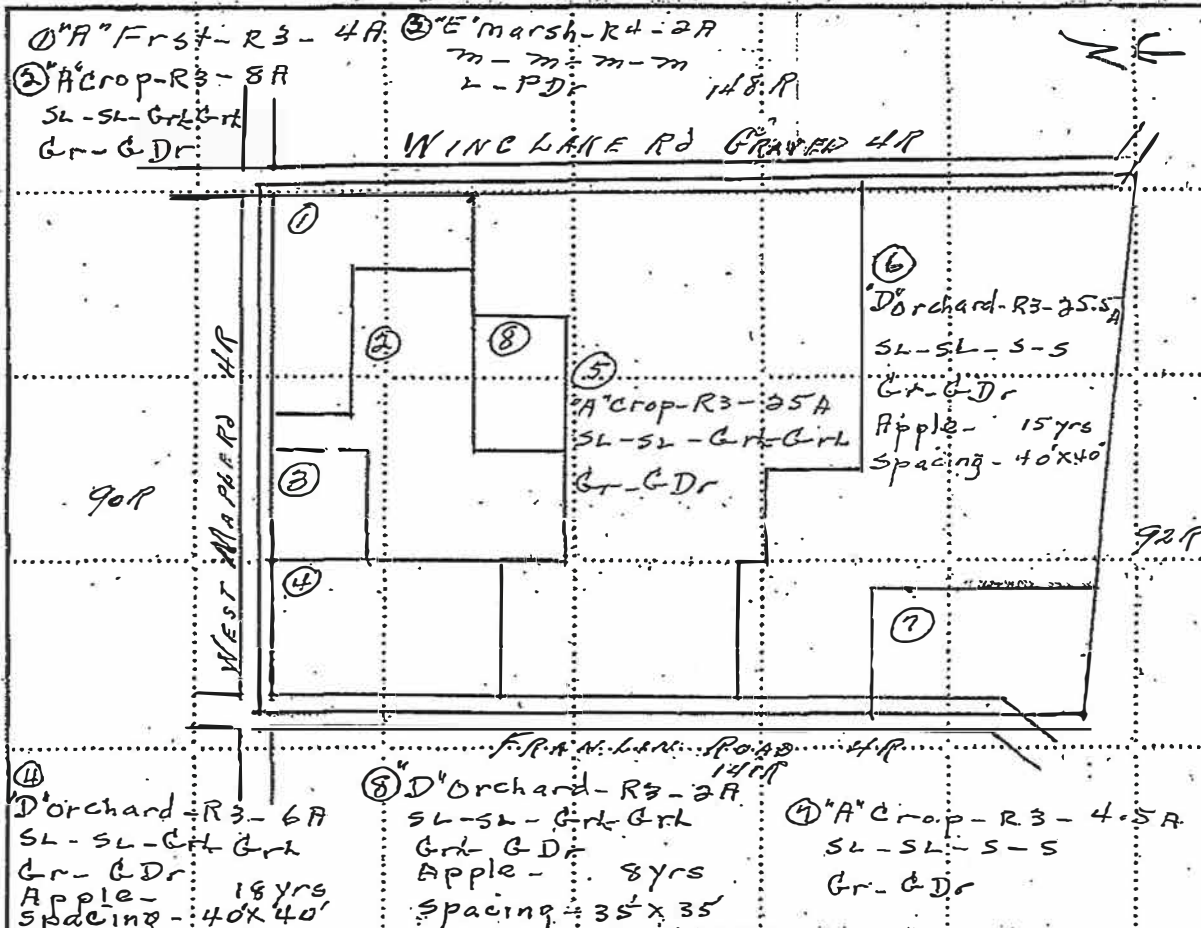 ① "A" Frst - R3 - 4A
② "A" Crop - R3 - 8A
SL - SL - GrL GrL
Gr - G Dr
③ "E" Marsh - R4 - 2A
m - m - m - m
L - PDr
148 R
WING LAKE Rd GRAVED 4R
①
②
⑧
③
④
WEST MAPLE Rd 4R
90R
⑤
"A" Crop - R3 - 25A
SL - SL - GrL - GrL
Gr - G Dr
⑥
"D" Orchard - R3 - 25.5A
SL - SL - S - S
Gr - G Dr
Apple - 15 yrs
Spacing - 40' X 40'
92 R
⑦
FRANLIN ROAD 4R
④
"D" Orchard - R3 - 6A
SL - SL - GrL GrL
Gr - G Dr
Apple - 18 yrs
Spacing - 40' X 40'
⑧ "D" Orchard - R3 - 2A
SL - SL - GrL GrL
GrL G Dr
Apple - 8 yrs
Spacing - 35' X 35'
⑦ "A" Crop - R3 - 4.5A
SL - SL - S - S
Gr - G Dr